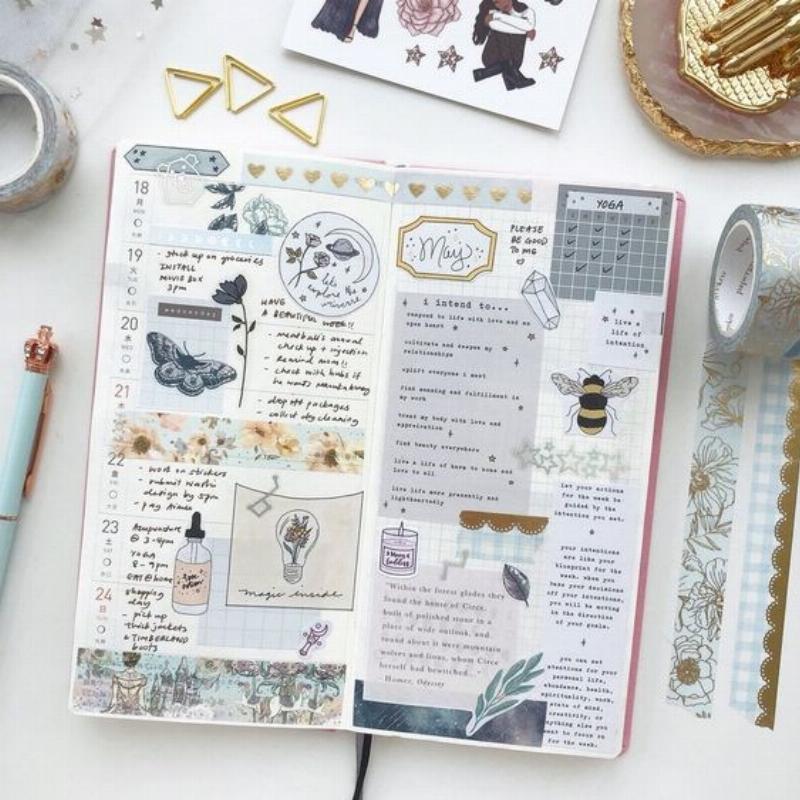 18
月
MON
19
火
- stock up on groceries
INSTALL
MOVIE BOX
3pm
like
explore the
universe
HAVE
A BEAUTIFUL WEEK!!
20
水
WED
wednesday
- meatball's annual
check up + injection
- Remind mom!!
- check with hubs if
he wants
21
木
- drop off packages
- collect dry cleaning
22
金
- work on stickers
- submit washi
design by 5pm
- pay
23
土
Acupuncture
@ 3-4pm
YOGA
8-9pm
EAT@home
love
potion
magic inside
24
日
SUN
shopping
day
- pick up
jackets
& TIMBERLAND
boots
May
PLEASE
BE GOOD
TO ME
YOGA
i intend to...
respond to life with love and an
open heart
cultivate and deepen my
relationships
uplift everyone i meet
find meaning and fulfillment in
my work
treat my body with love and
appreciation
find beauty everywhere
live a life of hero to some and
love to all
live life more presently and
lightheartedly
live a
life of
intention
let your actions
for the week be
guided by the
intention you set.
your intentions
are like your
blueprint for the
week. when you
base your decisions
off your intentions,
you will be moving
in the direction
of your goals.
you can set
intentions for your
personal life,
abundance, health,
spirituality, work,
state of mind,
creativity, or
anything else you
want to focus on
for the week.
"Within the forest glades they
found the house of Circe,
built of polished stone in a
place of wide outlook, and
round about it were mountain
wolves and lions, whom Circe
herself had bewitched..."
- Homer, Odyssey